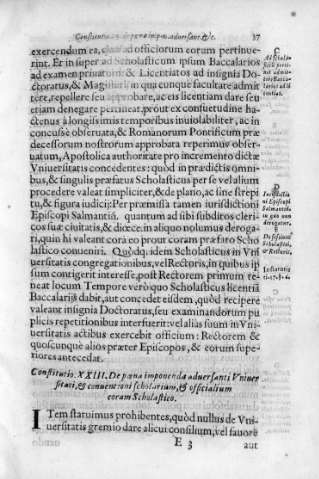 Constitutio. de pœna impon. adversant. &c. 37
exercendum ea, quæ ad officiorum eorum pertinue-
rint. Et in super ad Scholasticum ipsum Baccalarios
ad examen priuatum: & Licentiatos ad insignia Do-
ctoratus, & Magisterij in quacunque facultate admit
tere, repellere seu approbare, ac eis licentiam dare seu
etiam denegare pertineat, prout ex consuetudine ha-
ctenus à longissimis temporibus inuiolabiliter, ac in
concussè obseruata, & Romanorum Pontificum præ
decessorum nostrorum approbata reperimus obser-
uatum, Apostolica authoritate pro incremento dictæ
Vniuersitatis concedentes: quòd in prædictis omni-
bus, & singulis præfatus Scholasticus per se vel alium
procedere valeat simpliciter, & de plano, ac sine strepi
tu, & figura iudicij: Per præmissa tamen iurisdictioni
Episcopi Salmantiñ. quantum ad sibi subditos cleri-
cos suæ ciuitatis, & diœce. in aliquo nolumus deroga-
ri, quin hi valeant cora eo prout coram præfato Scho
lastico conueniri. Quòdq; idem Scholasticus in Vni
uersitatis congregationibus, vel Rectoris, in quibus ip
sum contigerit interesse, post Rectorem primum te-
neat locum Tempore verò quo Scholasticus licentiā
Baccalarijs dabit, aut concedet eisdem, quòd recipere
valeant insignia Doctoratus, seu examinandorum pu
plicis repetitionibus interfuerit: vel aliàs suum in Vni-
uersitatis actibus exercebit officium: Rectorem &
quoscunque alios præter Episcopos, & eorum supe-
riores antecedat.
Constitutio. XXIII. De pœna imponenda aduersanti Vniuer
sitati, & conuentioni scholarium, & officialium
coram Scholastico.
ITem statuimus prohibentes, quòd nullus de Vni-
uersitatis gremio dare alicui consilium, vel fauore
E 3 aut